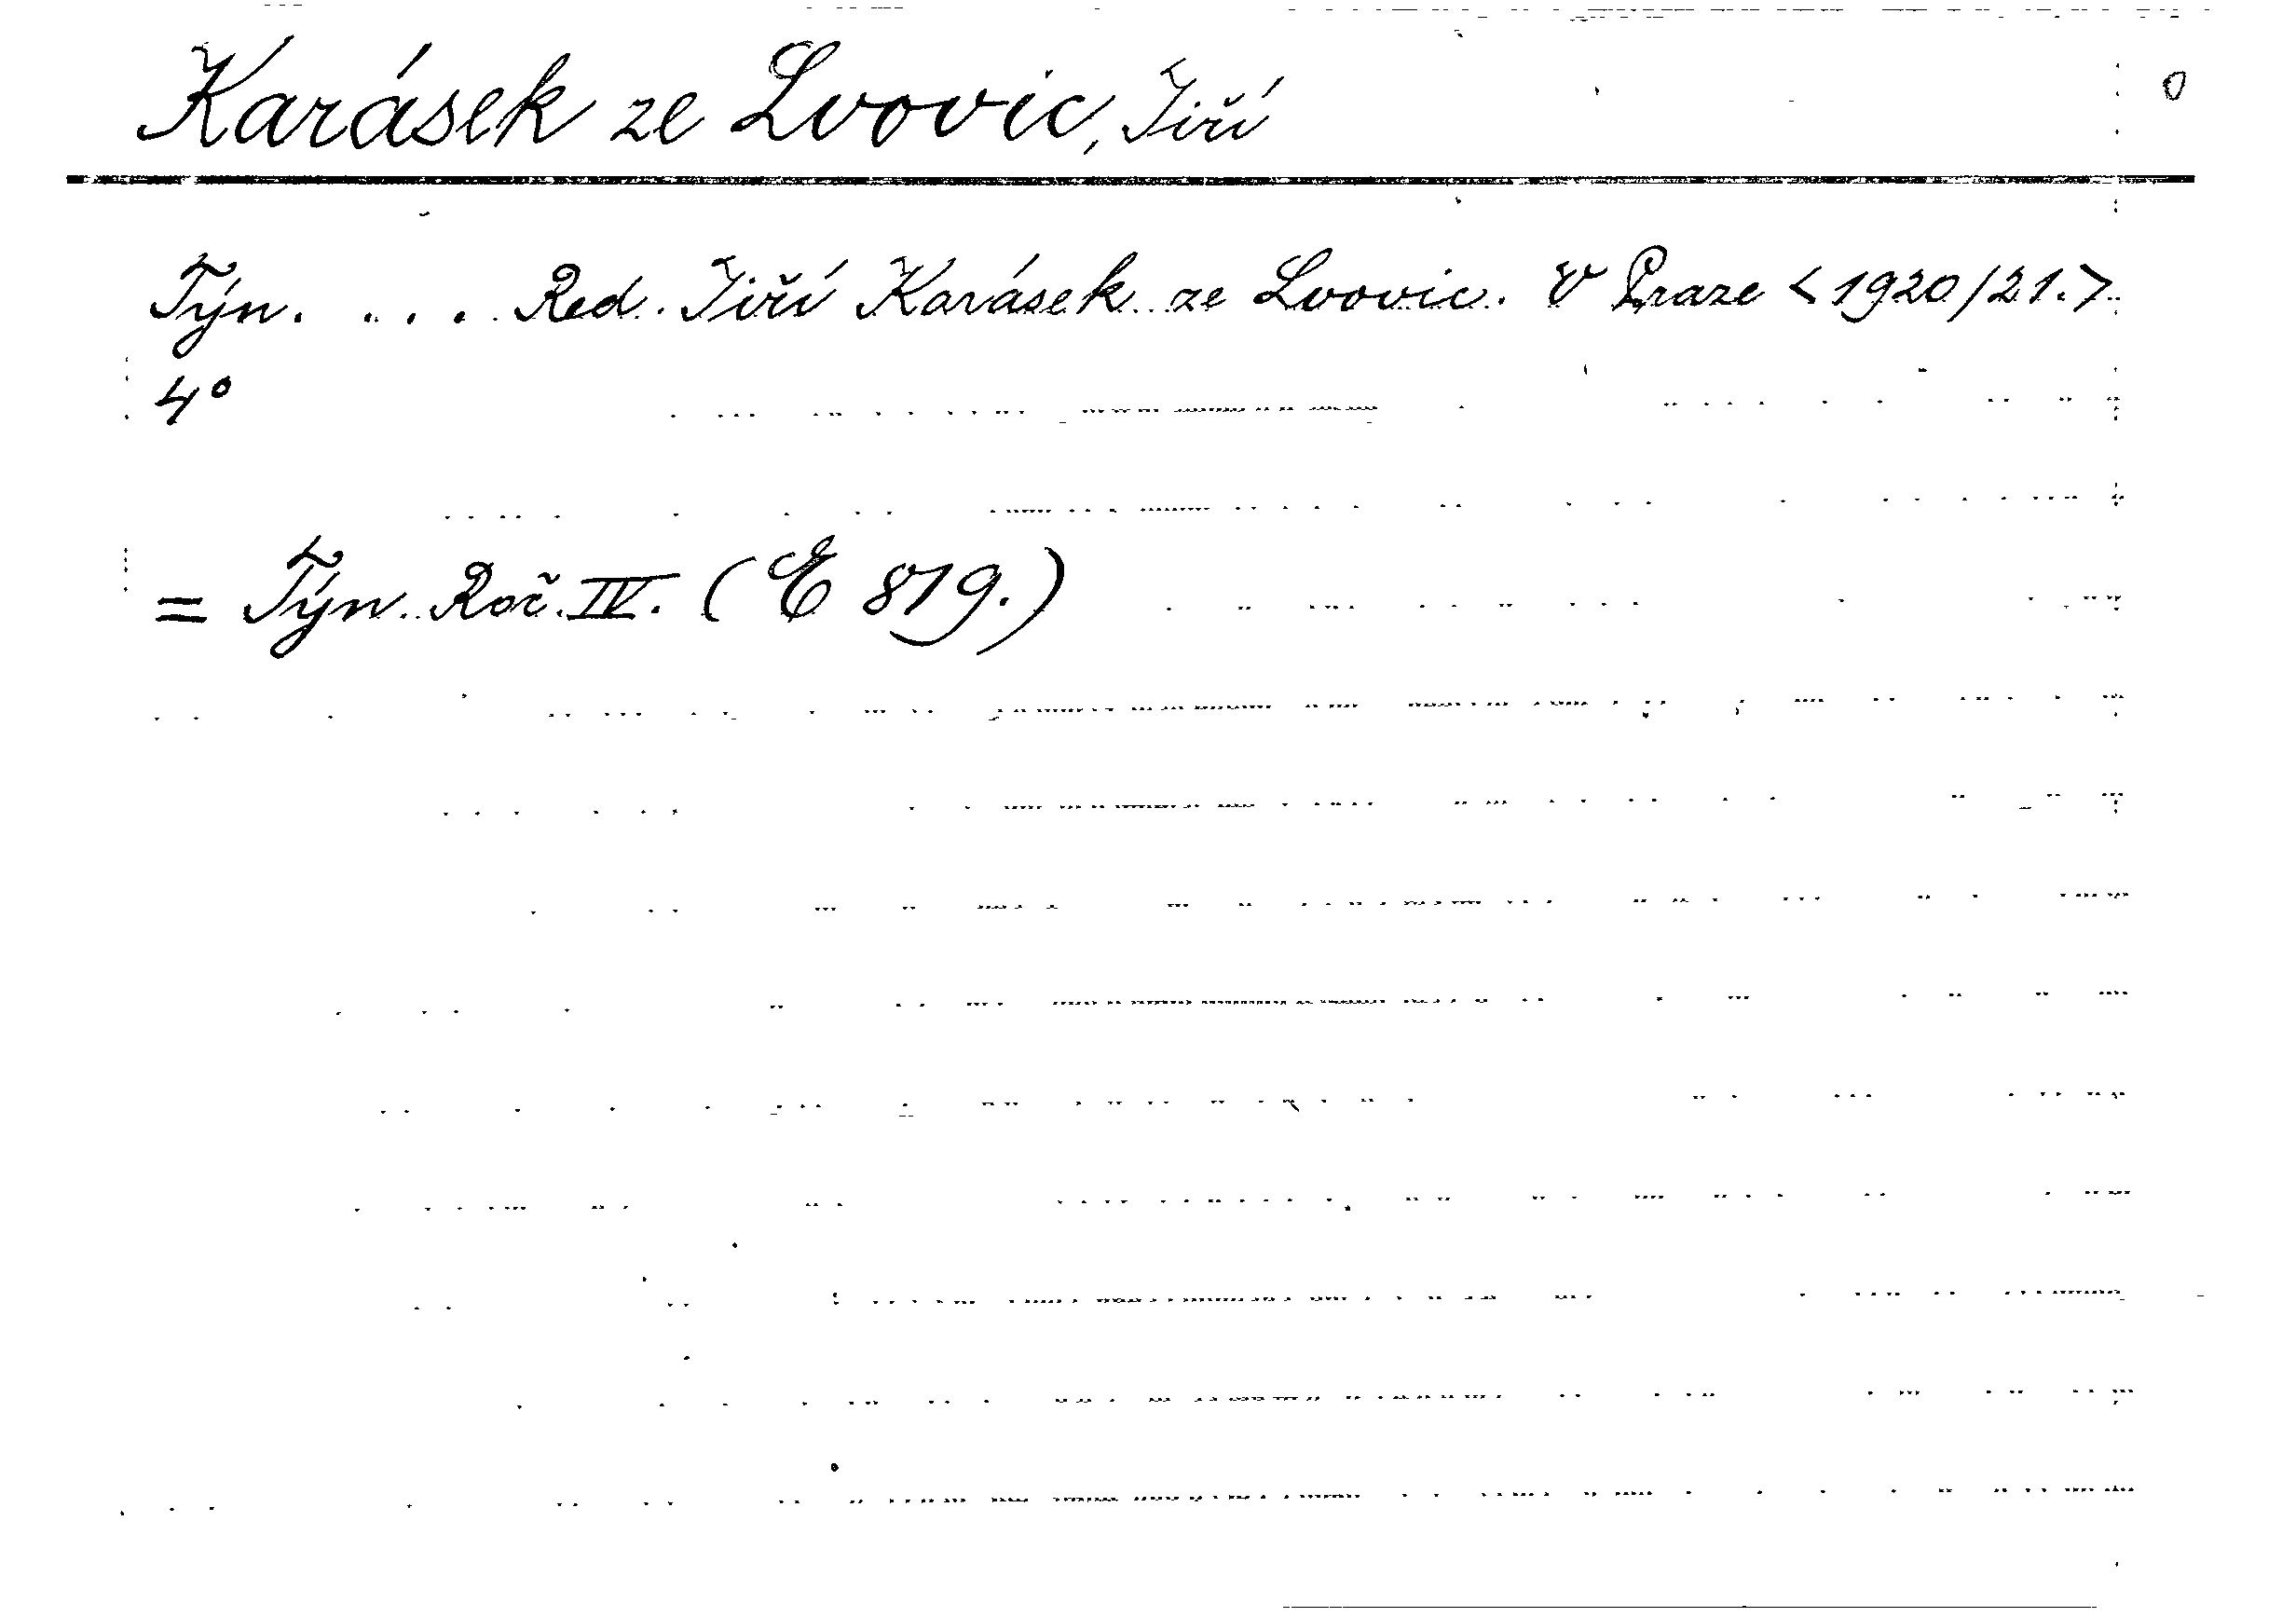 Karásek ze Lvovic, Jiří 0
Týn. . . . . Red. Jiří Karásek ze Lvovic. V Praze < 1920/21. >
4°
= Týn. Roč. IV. (E 819.)